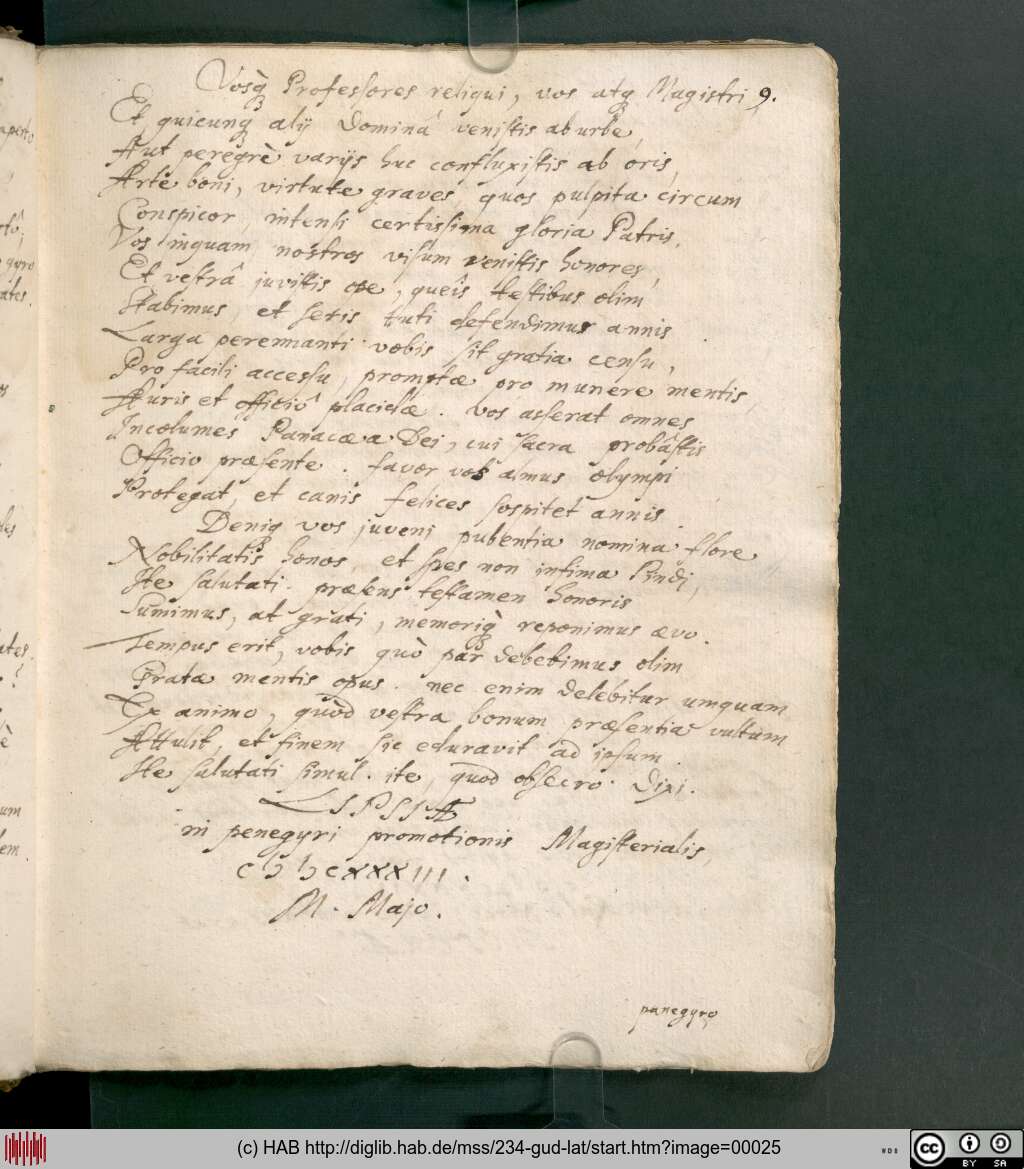 Vosq̀ Professores reliqui, vos atq Magistri, 9.
Et quicunq alij Dominâ venistis ab urbe,
Aut peregrè varijs huc confluxistis ab oris,
Arte boni, virtute graves, quos pulpita circum
Conspicor, intensi certissima gloria Patris,
Vos inquam nostros visum venistis honores,
Et vestrâ juvistis ope, queîs testibus olim
Stabimus, et seris tuti defendimur annis.
Larga perennanti vobis sit gratia censu,
Pro facili accessu, promptæ pro munere mentis,
Auris et officiô placidæ. Vos asserat omnes
Incolumes Panacæa Dei, cui sacra probâstis
Officio præsente. favor vos almus olympi
Protegat, et canis felices sospitet annis.
Deniq vos juveni pubentia nomina flore
Nobilitatis honos, et spes non infima Pindi,
Ite salutati. præsens testamen honoris
Sumimus, at grati, memoriq̀ reponimus ævo.
Tempus erit, vobis quò par debebimus olim
Gratæ mentis opus. nec enim delebitur umquam
Ex animo, quòd vestra bonum præsentia vultum
Attulit, et finem sic eduravit ad ipsum.
Ite salutati simul. ite, quod obsecro. Dixi.
LIPSIÆ
in penegyri promotionis Magisterialis,
CIↃ IↃCXXXIII.
M. Majo.
panegyro
(c) HAB http://diglib.hab.de/mss/234-gud-lat/start.htm?image=00025
WDB
cc BY SA